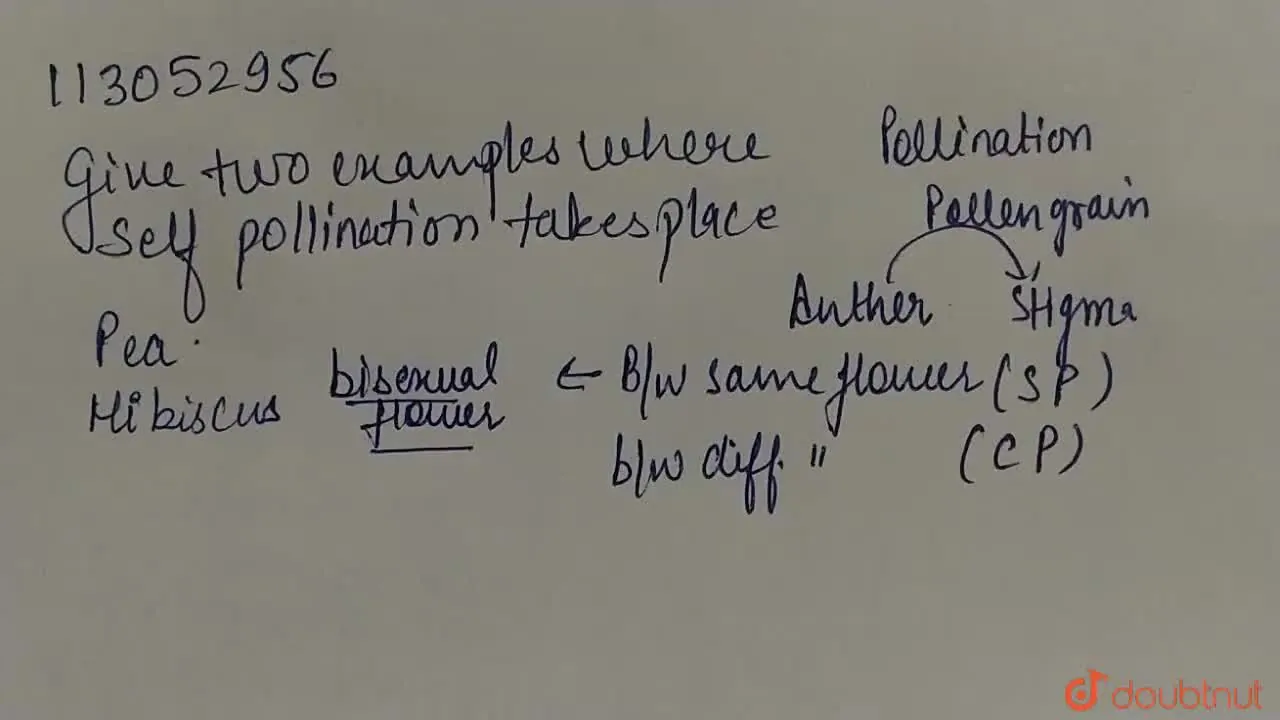 113052956
Give two examples where
self pollination takes place
Pea.
Hibiscus
bisexual
flower
Pollination
Pollengrain
Anther Stigma
← B/w same flower (SP)
b/w diff. " (CP)
doubtnut